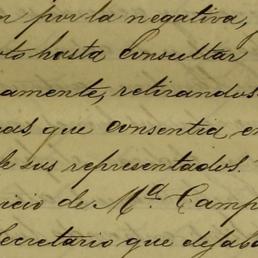 n por la negativa,
oto hasta consultar
amente, retirandos
as que consentia en
e sus representados.
icio de Mª Camp
Secretario que desaba